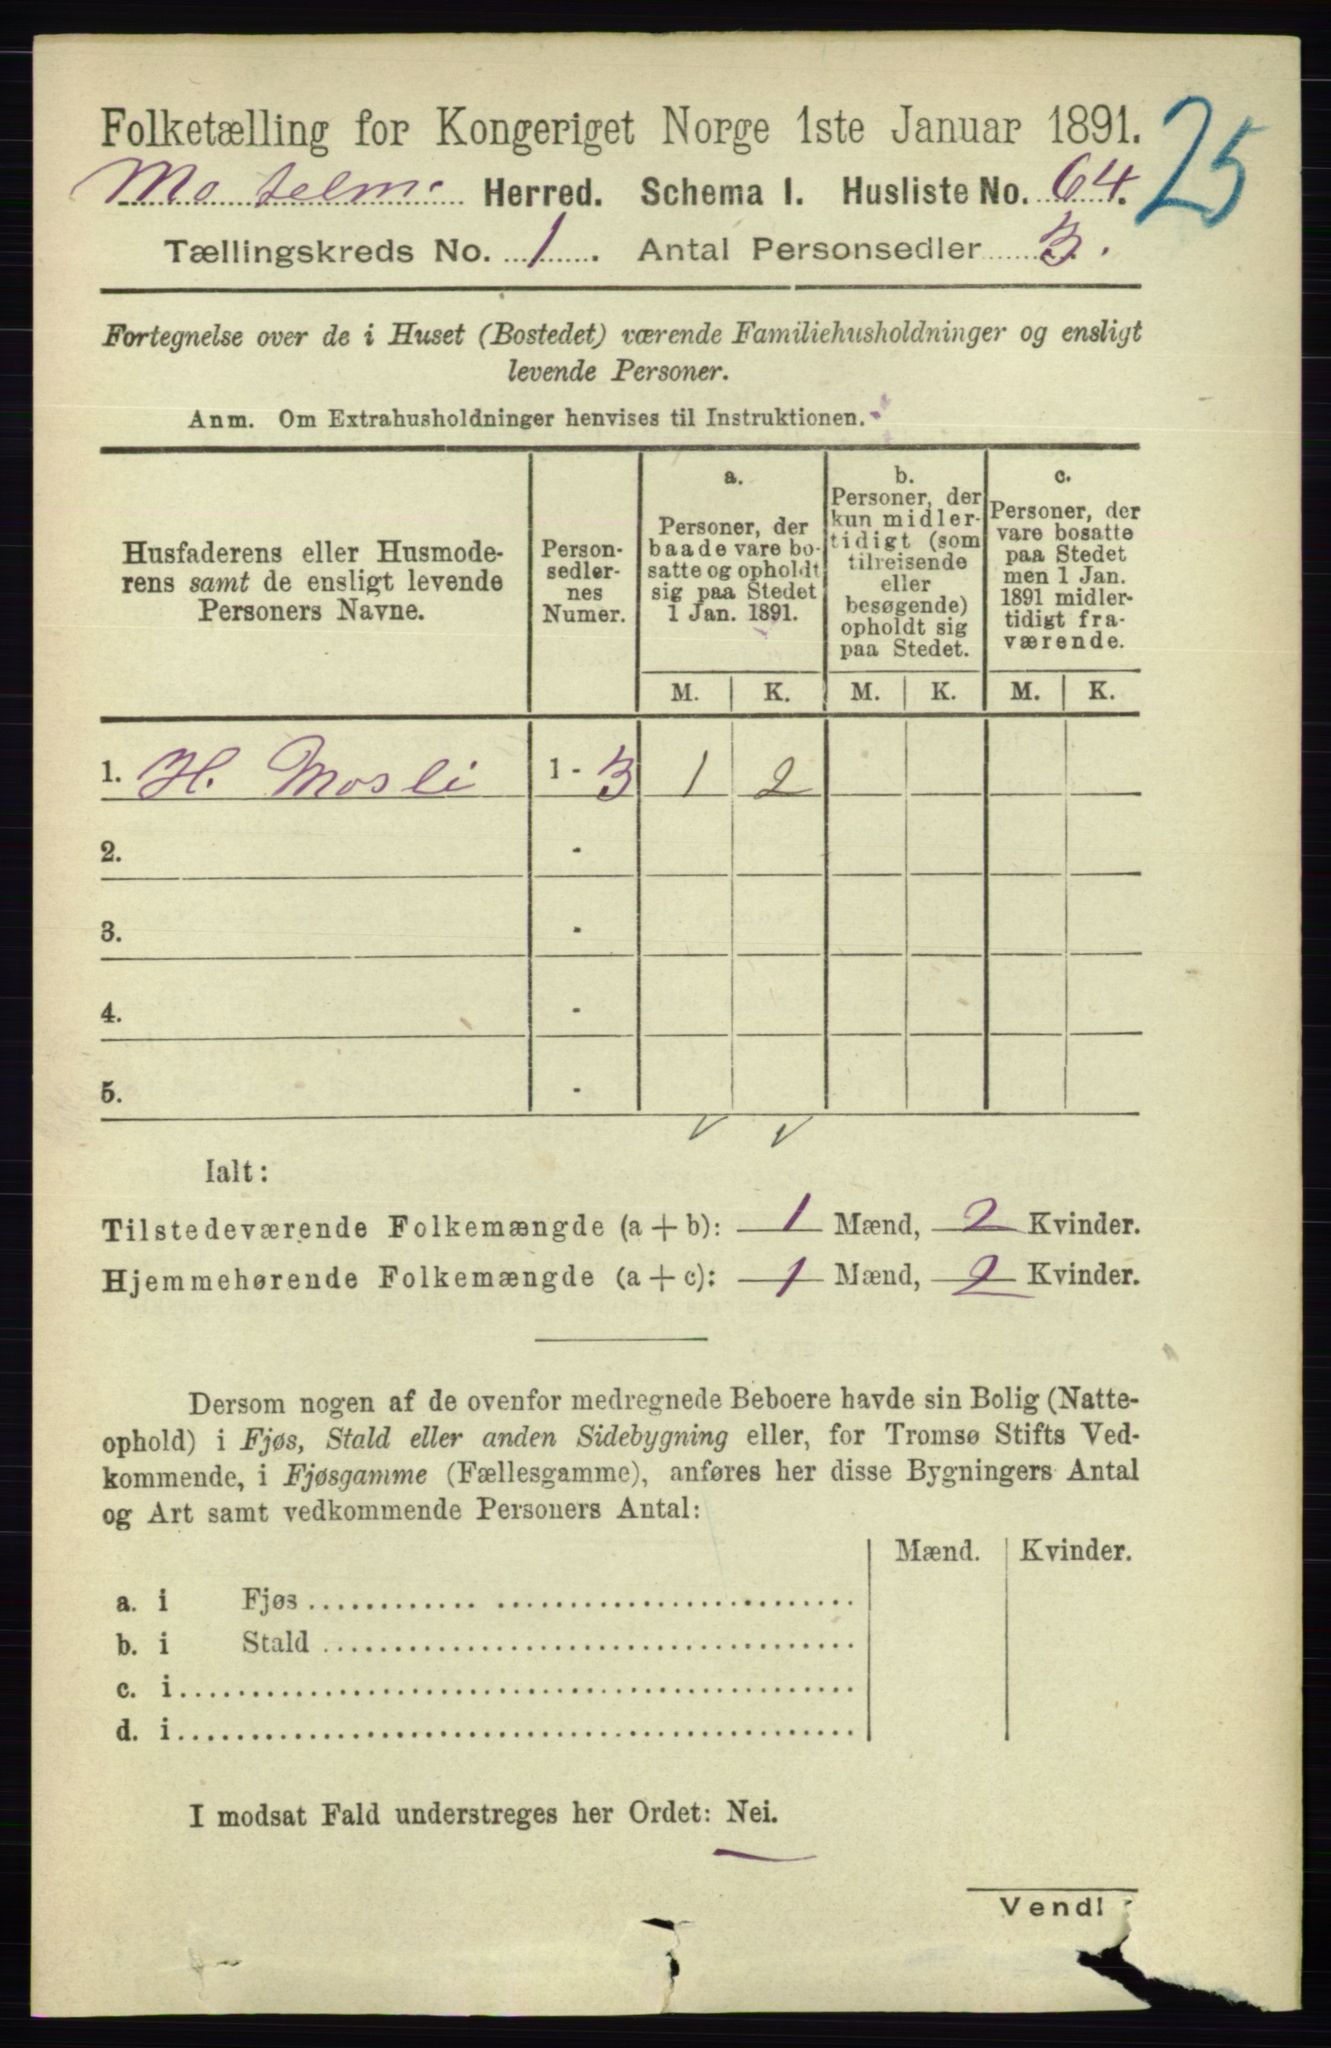 Folketælling for Kongeriget Norge 1ste Januar 1891.
25
Mo telm. Herred. Schema I. Husliste No. 64.
Tællingskreds No. 1. Antal Personsedler 3.
Fortegnelse over de i Huset (Bostedet) værende Familiehusholdninger og ensligt
levende Personer.
Anm. Om Extrahusholdninger henvises til Instruktionen.
Husfaderens eller Husmode-
rens samt de ensligt levende
Personers Navne.
Person-
sedler-
nes
Numer.
a.
Personer, der
baade vare bo-
satte og opholdt
sig paa Stedet
1 Jan. 1891.
b.
Personer, der
kun midler-
tidigt (som
tilreisende
eller
besøgende)
opholdt sig
paa Stedet.
c.
Personer, der
vare bosatte
paa Stedet
men 1 Jan.
1891 midler-
tidigt fra-
værende.
M. K. M. K. M. K.
1. H. Mosli 1 - 3 1 2
2. -
3. -
4. -
5. -
Ialt:
Tilstedeværende Folkemængde (a + b): 1 Mænd, 2 Kvinder.
Hjemmehørende Folkemængde (a + c): 1 Mænd, 2 Kvinder.
Dersom nogen af de ovenfor medregnede Beboere havde sin Bolig (Natte-
ophold) i Fjøs, Stald eller anden Sidebygning eller, for Tromsø Stifts Ved-
kommende, i Fjøsgamme (Fællesgamme), anføres her disse Bygningers Antal
og Art samt vedkommende Personers Antal:
Mænd. Kvinder.
a. i Fjøs
b. i Stald
c. i
d. i
I modsat Fald understreges her Ordet: Nei.
Vend!